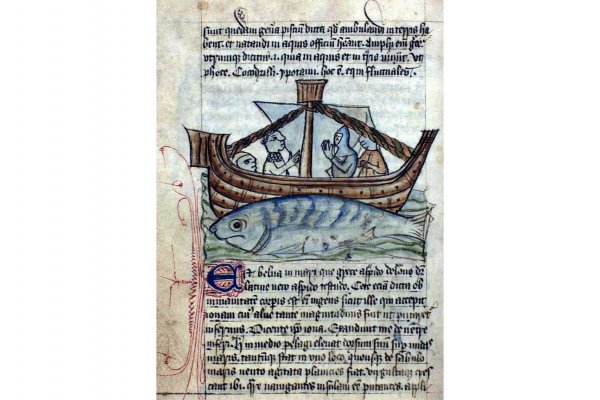 sunt quedam gen̄a pisciū dicta qd̄ ambulandi in terris ha
bent. et natandi in aquis officiū Amphi enī
dicitur .i. quia in aquis et in tr̄is uiuūt. Vt
phoce. Cocodrilli. ypotami. hoc ē. equi fluctuales.
Est belua in mari que grece aspido delone dr̄
latine uero aspido testudo. Cete etiā dicta ob
inmanitatem corporis est enī ingens sicut ille qui accepit
ionam cuiꝰ aluꝰ tante magnitudinis fuit ut putaret
infernus. Dicente ip̄o iona. Exaudiuit me de uentre
inferi. in medio pelagi eleuat dorsum suū sup̄ undas
maris. stat in uno loco. quousque de sabulo
maris uento agitata planicies fiat. cres
cant ibi. nauigantes insulam eē putantes. appli